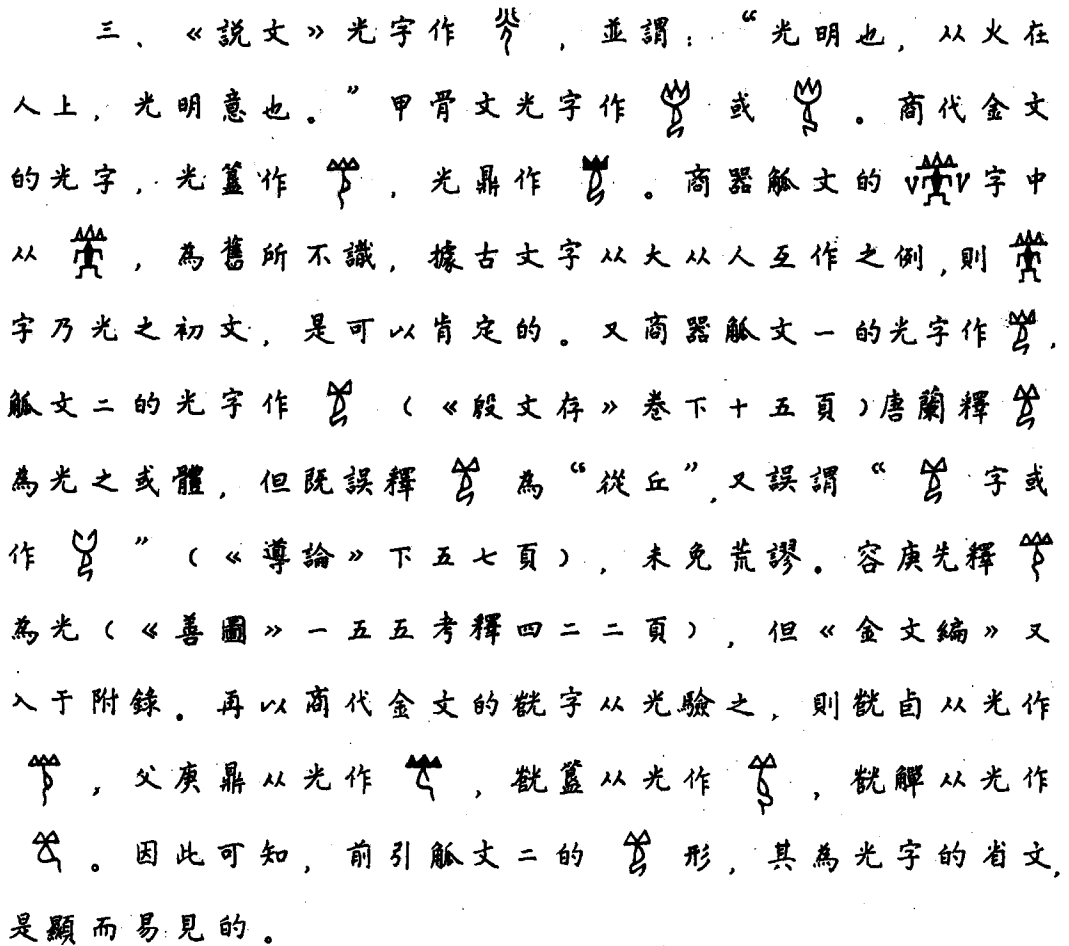 三、《説文》光字作 ，並謂：“光明也，从火在
人上，光明意也。”甲骨文光字作 或 。商代金文
的光字，光簋作 ，光鼎作 。商器觚文的 字中
从 ，為舊所不識，據古文字从大从人互作之例，則
字乃光之初文，是可以肯定的。又商器觚文一的光字作 ，
觚文二的光字作 （《殷文存》卷下十五頁）唐蘭釋
為光之或體，但既誤釋 為“從丘”，又誤謂“ 字或
作 ”（《導論》下五七頁），未免荒謬。容庚先釋
為光（《善圖》一五五考釋四二二頁），但《金文編》又
入于附錄。再以商代金文的 字从光驗之，則 卣从光作
，父庚鼎从光作 ， 簋从光作 ， 觶从光作
。因此可知，前引觚文二的 形，其為光字的省文，
是顯而易見的。